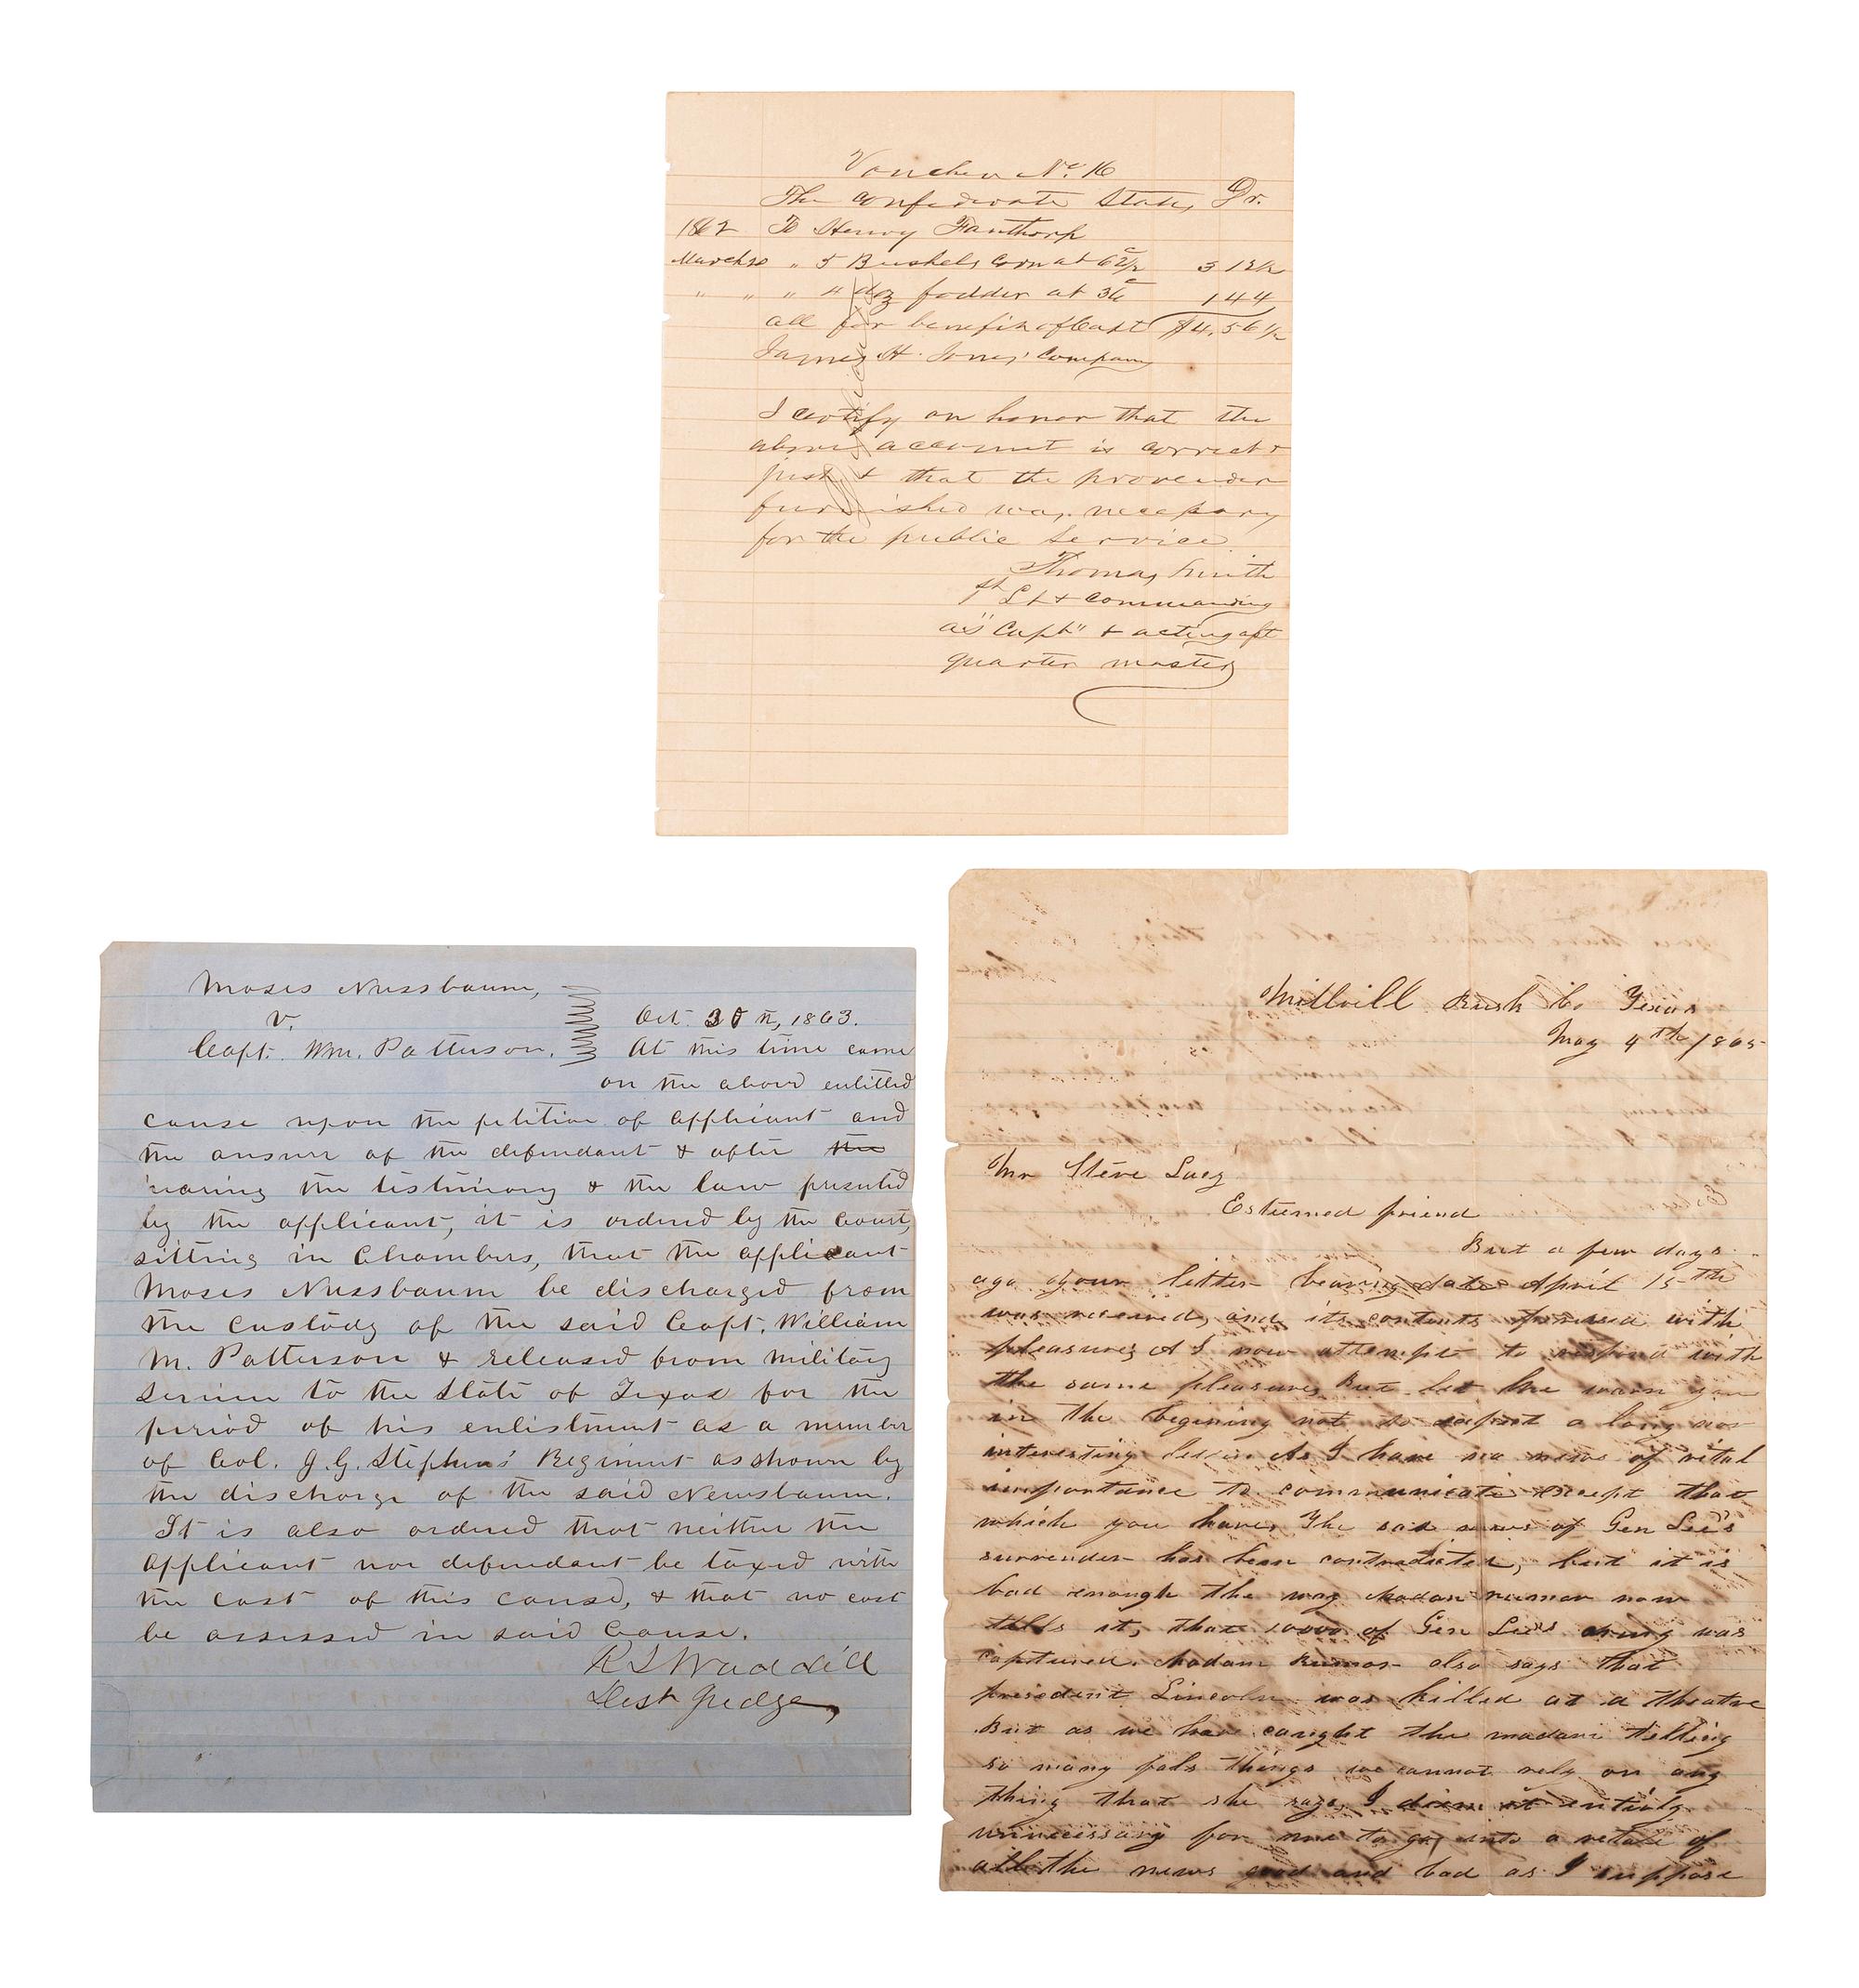 Voucher No. 16
The Confederate States Dr.
1862 To Henry Fanthorp
March 20 " 5 Bushels Corn at 62½ c 3 12½
" " " 4 doz fodder at 36 c 1 44
all for benefit of Capt $4.56½
James H. Jones' Company
I certify on honor that the
above account is correct &
just & that the provender
furnished was necessary
for the public service
Thomas Smith
1st Lt & commanding
as "Capt" & acting asst
quarter master
Moses Nussbaum,
v.
Capt. Wm. Patterson.
Oct. 30th, 1863.
At this time came
on the above entitled
cause upon the petition of applicant and
the answer of the defendant & after the
hearing the testimony & the law presented
by the applicant, it is ordered by the Court,
sitting in Chambers, that the applicant
Moses Nussbaum be discharged from
the custody of the said Capt. William
M. Patterson & released from military
service to the State of Texas for the
period of his enlistment as a member
of Col. J.G. Stephens' Regiment as shown by
the discharge of the said Newsbaum.
It is also ordered that neither the
applicant nor defendant be taxed with
the cost of this cause, & that no cost
be assessed in said Cause.
R L Waddill
Dist Judge,
Millvill Rush Co Texas
May 4th 1865
Mr Steve
Esteemed friend
But a few days
ago your letter bearing date April 15th
was received, and its contents perused with
pleasure, & I now attempt to respond with
the same pleasure, But let me warn you
in the begining not to expect a long nor
interesting letter As I have no news of vital
importance to communicate except that
which you have, The sad news of Gen Lee's
surrender has been contradicted, but it is
bad enough the way Madam rumor now
tells it, that 10000 of Gen Lee's army was
captured. Madam Rumor also says that
president Lincoln was killed at a theatre
But as we have caught the madam telling
so many fals things we cannot rely on any
thing that she says, I deem it entirly
unnecessary for me to go into a retail of
all the news good and bad as I suppose